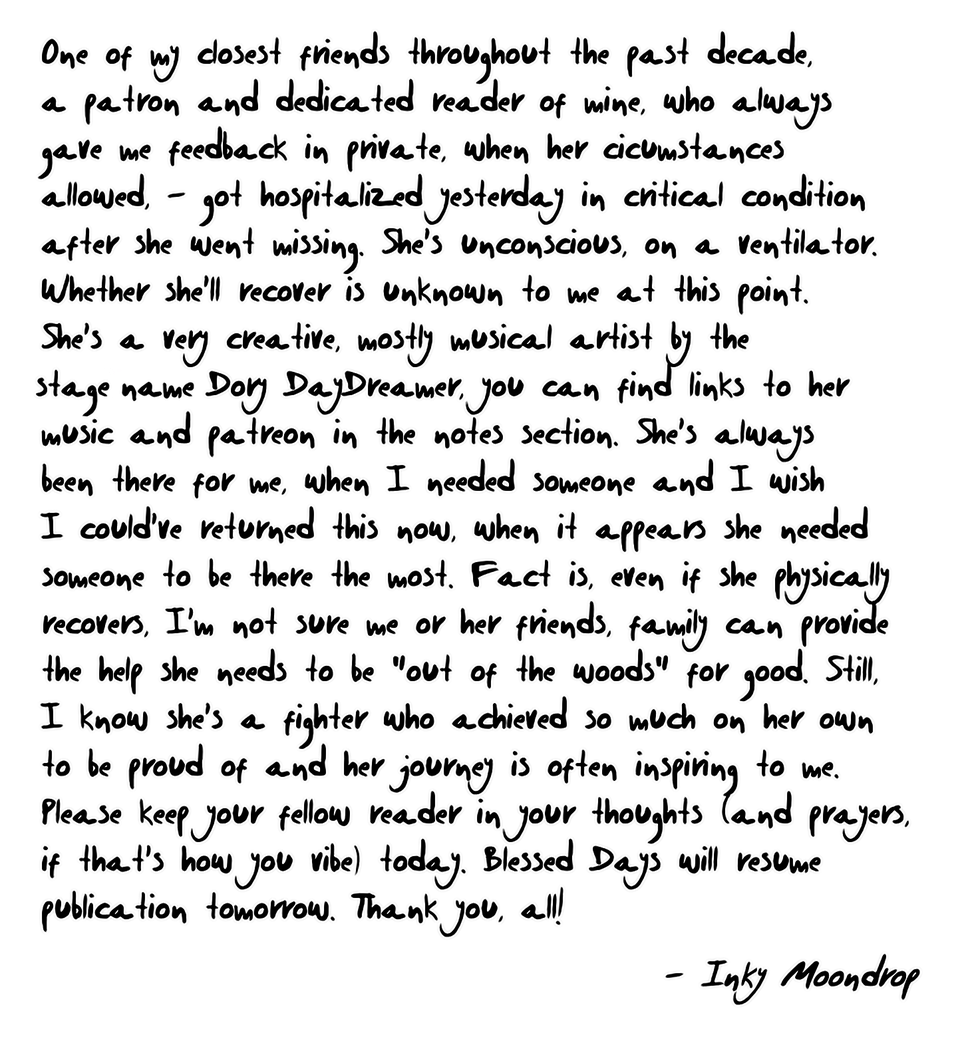 One of my closest friends throughout the past decade,
a patron and dedicated reader of mine, who always
gave me feedback in private, when her cicumstances
allowed, - got hospitalized yesterday in critical condition
after she went missing. She's unconscious, on a ventilator.
Whether she'll recover is unknown to me at this point.
She's a very creative, mostly musical artist by the
stage name Dory DayDreamer, you can find links to her
music and patreon in the notes section. She's always
been there for me, when I needed someone and I wish
I could've returned this now, when it appears she needed
someone to be there the most. Fact is, even if she physically
recovers, I'm not sure me or her friends, family can provide
the help she needs to be "out of the woods" for good. Still,
I know she's a fighter who achieved so much on her own
to be proud of and her journey is often inspiring to me.
Please keep your fellow reader in your thoughts (and prayers,
if that's how you vibe) today. Blessed Days will resume
publication tomorrow. Thank you, all!
- Inky Moondrop